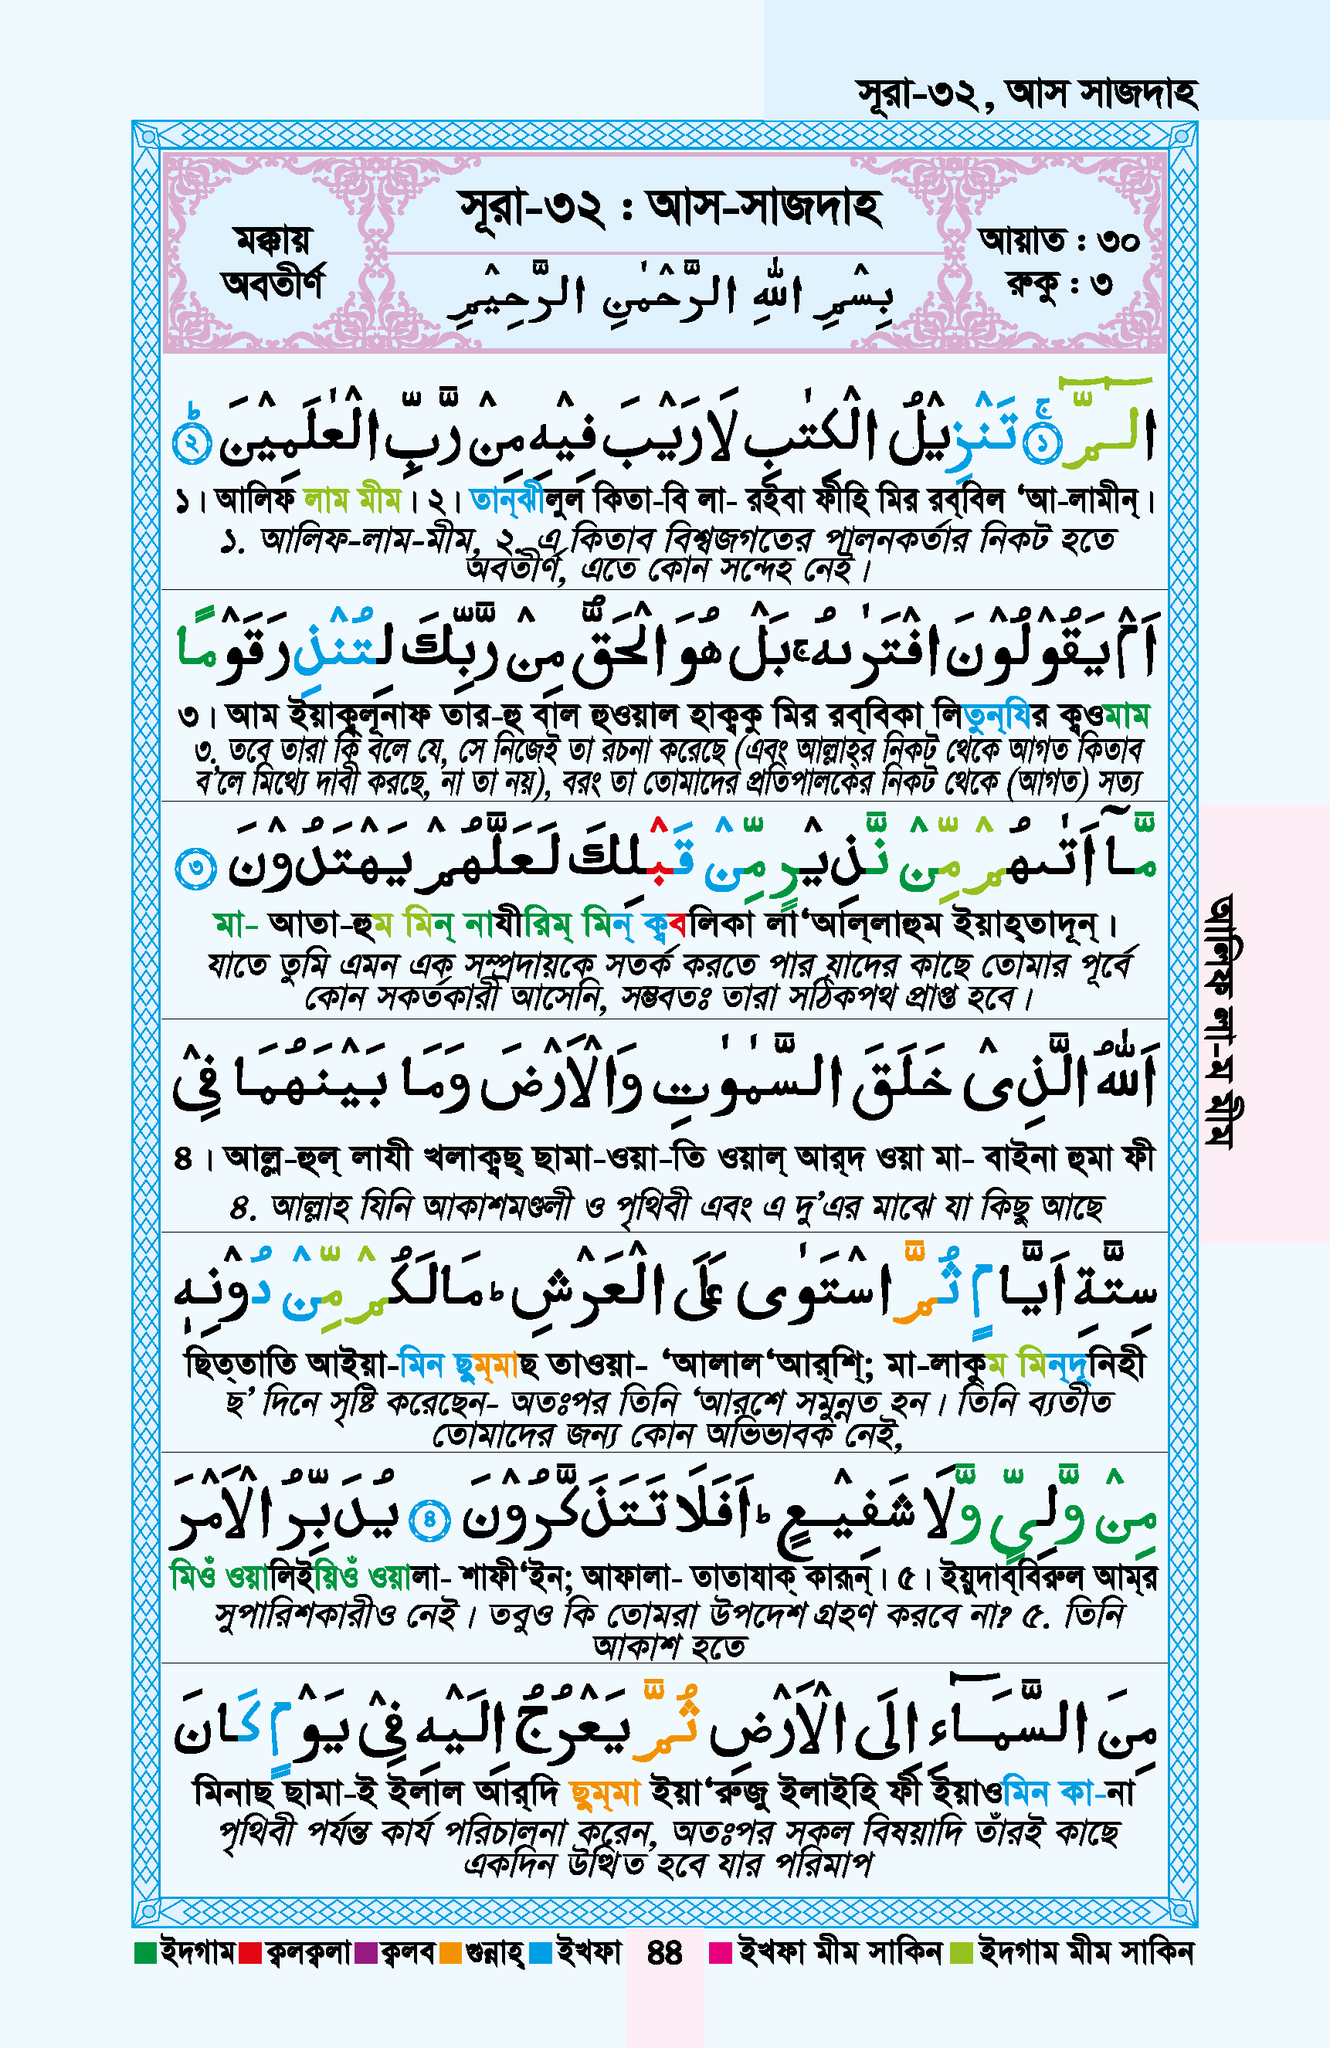 সূরা-৩২, আস সাজদাহ
সূরা-৩২ : আস-সাজদাহ
মক্কায়
অবতীর্ণ
আয়াত : ৩০
রুকু : ৩
بِسْمِ اللّٰهِ الرَّحْمٰنِ الرَّحِيْمِ
الٓمّٓ ۚ﴿১﴾ تَنْزِيْلُ الْكِتٰبِ لَا رَيْبَ فِيْهِ مِنْ رَّبِّ الْعٰلَمِيْنَ ؕ﴿২﴾
১। আলিফ লাম মীম। ২। তান্‌ঝীলুল কিতা-বি লা- রইবা ফীহি মির রব্‌বিল ‘আ-লামীন্‌।
১. আলিফ-লাম-মীম, ২. এ কিতাব বিশ্বজগতের পালনকর্তার নিকট হতে
অবতীর্ণ, এতে কোন সন্দেহ নেই।
اَمْ يَقُوْلُوْنَ افْتَرٰىهُ ۚ بَلْ هُوَ الْحَقُّ مِنْ رَّبِّكَ لِتُنْذِرَ قَوْمًا
৩। আম ইয়াকূলূনাফ তার-হু বাল হুওয়াল হাক্বকু মির রব্‌বিকা লিতুন্‌যির ক্বওমাম
৩. তবে তারা কি বলে যে, সে নিজেই তা রচনা করেছে (এবং আল্লাহ্‌র নিকট থেকে আগত কিতাব
ব’লে মিথ্যে দাবী করছে, না তা নয়), বরং তা তোমাদের প্রতিপালকের নিকট থেকে (আগত) সত্য
مَّاۤ اَتٰىهُمْ مِّنْ نَّذِيْرٍ مِّنْ قَبْلِكَ لَعَلَّهُمْ يَهْتَدُوْنَ ﴿৩﴾
মা- আতা-হুম মিন্‌ নাযীরিম্‌ মিন্‌ ক্ববলিকা লা‘আল্‌লাহুম ইয়াহ্‌তাদূন্‌।
যাতে তুমি এমন এক সম্প্রদায়কে সতর্ক করতে পার যাদের কাছে তোমার পূর্বে
কোন সকর্তকারী আসেনি, সম্ভবতঃ তারা সঠিকপথ প্রাপ্ত হবে।
اَللّٰهُ الَّذِىْ خَلَقَ السَّمٰوٰتِ وَالْاَرْضَ وَمَا بَيْنَهُمَا فِىْ
৪। আল্ল-হুল্‌ লাযী খলাক্বছ্‌ ছামা-ওয়া-তি ওয়াল্‌ আর্‌দ ওয়া মা- বাইনা হুমা ফী
৪. আল্লাহ যিনি আকাশমণ্ডলী ও পৃথিবী এবং এ দু’এর মাঝে যা কিছু আছে
سِتَّةِ اَيَّامٍ ثُمَّ اسْتَوٰى عَلَى الْعَرْشِ ؕ مَا لَكُمْ مِّنْ دُوْنِهٖ
ছিত্‌তাতি আইয়া-মিন ছুম্‌মাছ তাওয়া- ‘আলাল‘আর্‌শি; মা-লাকুম মিন্‌দূনিহী
ছ’ দিনে সৃষ্টি করেছেন- অতঃপর তিনি ‘আরশে সমুন্নত হন। তিনি ব্যতীত
তোমাদের জন্য কোন অভিভাবক নেই,
مِنْ وَّلِىٍّ وَّلَا شَفِيْعٍ ؕ اَفَلَا تَتَذَكَّرُوْنَ ﴿৪﴾ يُدَبِّرُ الْاَمْرَ
মিওঁ ওয়ালিইয়িওঁ ওয়ালা- শাফী‘ইন; আফালা- তাতাযাক্‌ কারূন্‌। ৫। ইয়ুদাব্‌বিরুল আম্‌র
সুপারিশকারীও নেই। তবুও কি তোমরা উপদেশ গ্রহণ করবে না? ৫. তিনি
আকাশ হতে
مِنَ السَّمَآءِ اِلَى الْاَرْضِ ثُمَّ يَعْرُجُ اِلَيْهِ فِىْ يَوْمٍ كَانَ
মিনাছ ছামা-ই ইলাল আর্‌দি ছুম্‌মা ইয়া‘রুজু ইলাইহি ফী ইয়াওমিন কা-না
পৃথিবী পর্যন্ত কার্য পরিচালনা করেন, অতঃপর সকল বিষয়াদি তাঁরই কাছে
একদিন উত্থিত হবে যার পরিমাপ
আলিফ লা-ম মীম
ইদগাম ক্বলক্বলা ক্বলব গুন্নাহ্‌ ইখফা ৪৪ ইখফা মীম সাকিন ইদগাম মীম সাকিন